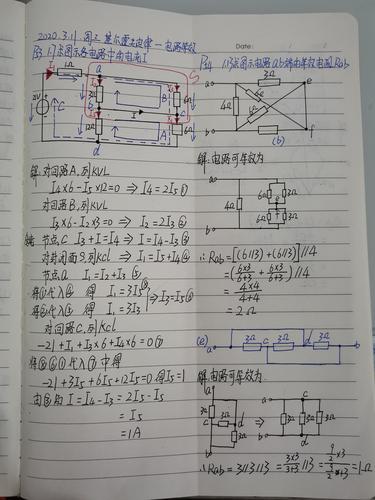 2020.3.11 周三 基尔霍夫定律—电路等效
P3 1.1求图示各电路中的电流I
I₁
1Ω
a
3Ω
6Ω
B
21V
C
b
I
c
12Ω
A
6Ω
d
S
解: 对回路A,列KVL
I4×6-I5×12=0 ⇒ I4=2I5①
对回路B,列KVL
I3×6-I2×3=0 ⇒ I2=2I3②
节点C I3+I=I4⇒ I=I4-I3③
对封闭面S,列KCL ⇒ I1=I5+I4④
节点a I1=I2+I3⑤
将①代入④ 得 I1=3I5⑥
将②代入⑤ 得 I1=3I3
⇒I3=I5⑧
对回路C,列KCL
-21+I1+I3×6+I4×6=0⑦
将⑧⑥①代入⑦中得
-21+3I5+6I5+12I5=0得I5=1
由③知 I=I4-I3=2I5-I5
=I5
=1A
Date:
P4 1.13求图示电路ab端的等效电阻Rab
3Ω
a
e
4Ω
6Ω
6Ω
b
3Ω
f
(b)
解:电路可等效为
a
6Ω
3Ω
4Ω
e
6Ω
3Ω
b
∴Rab=[(6||3)+(6||3)]||4
=(6×3/6+3+6×3/6+3)||4
=4×4/4+4
=2Ω
(e)
a
3Ω
c
3Ω
d
3Ω
b
解:电路可等效为
a
3Ω
c
3Ω
d
3Ω
b
⇒
a
c
3Ω
3Ω
3Ω
b
d
∴Rab=3||3||3=3×3/3+3||3=9/2×3/9/2+3=1Ω